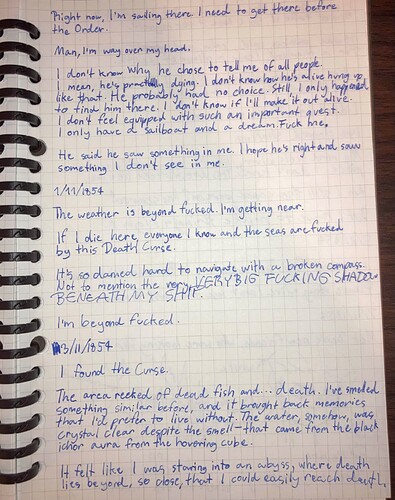 Right now, I'm sailing there. I need to get there before
the Order.
Man, I'm way over my head.
I don't know why he chose to tell me of all people.
I mean, he's practically dying. I don't know how he's alive hung up
like that. He probably had no choice. Still, I only happened
to find him there. I don't know if I'll make it out alive.
I don't feel equipped with such an important quest.
I only have a sailboat and a dream. Fuck me.
He said he saw something in me. I hope he's right and saw
something I don't see in me.
1/11/1854
The weather is beyond fucked. I'm getting near.
If I die here, everyone I know and the seas are fucked
by this Death Curse.
It's so damned hard to navigate with a broken compass.
Not to mention the very VERY BIG FUCKING SHADOW
BENEATH MY SHIT.
I'm beyond fucked.
3/11/1854
I found the Curse.
The area reeked of dead fish and... death. I've smelled
something similar before, and it brought back memories
that I'd prefer to live without. The water, somehow, was
crystal clear despite the smell that came from the black
ichor aura from the hovering cube.
It felt like I was staring into an abyss, where death
lies beyond, so close, that I could easily reach death.